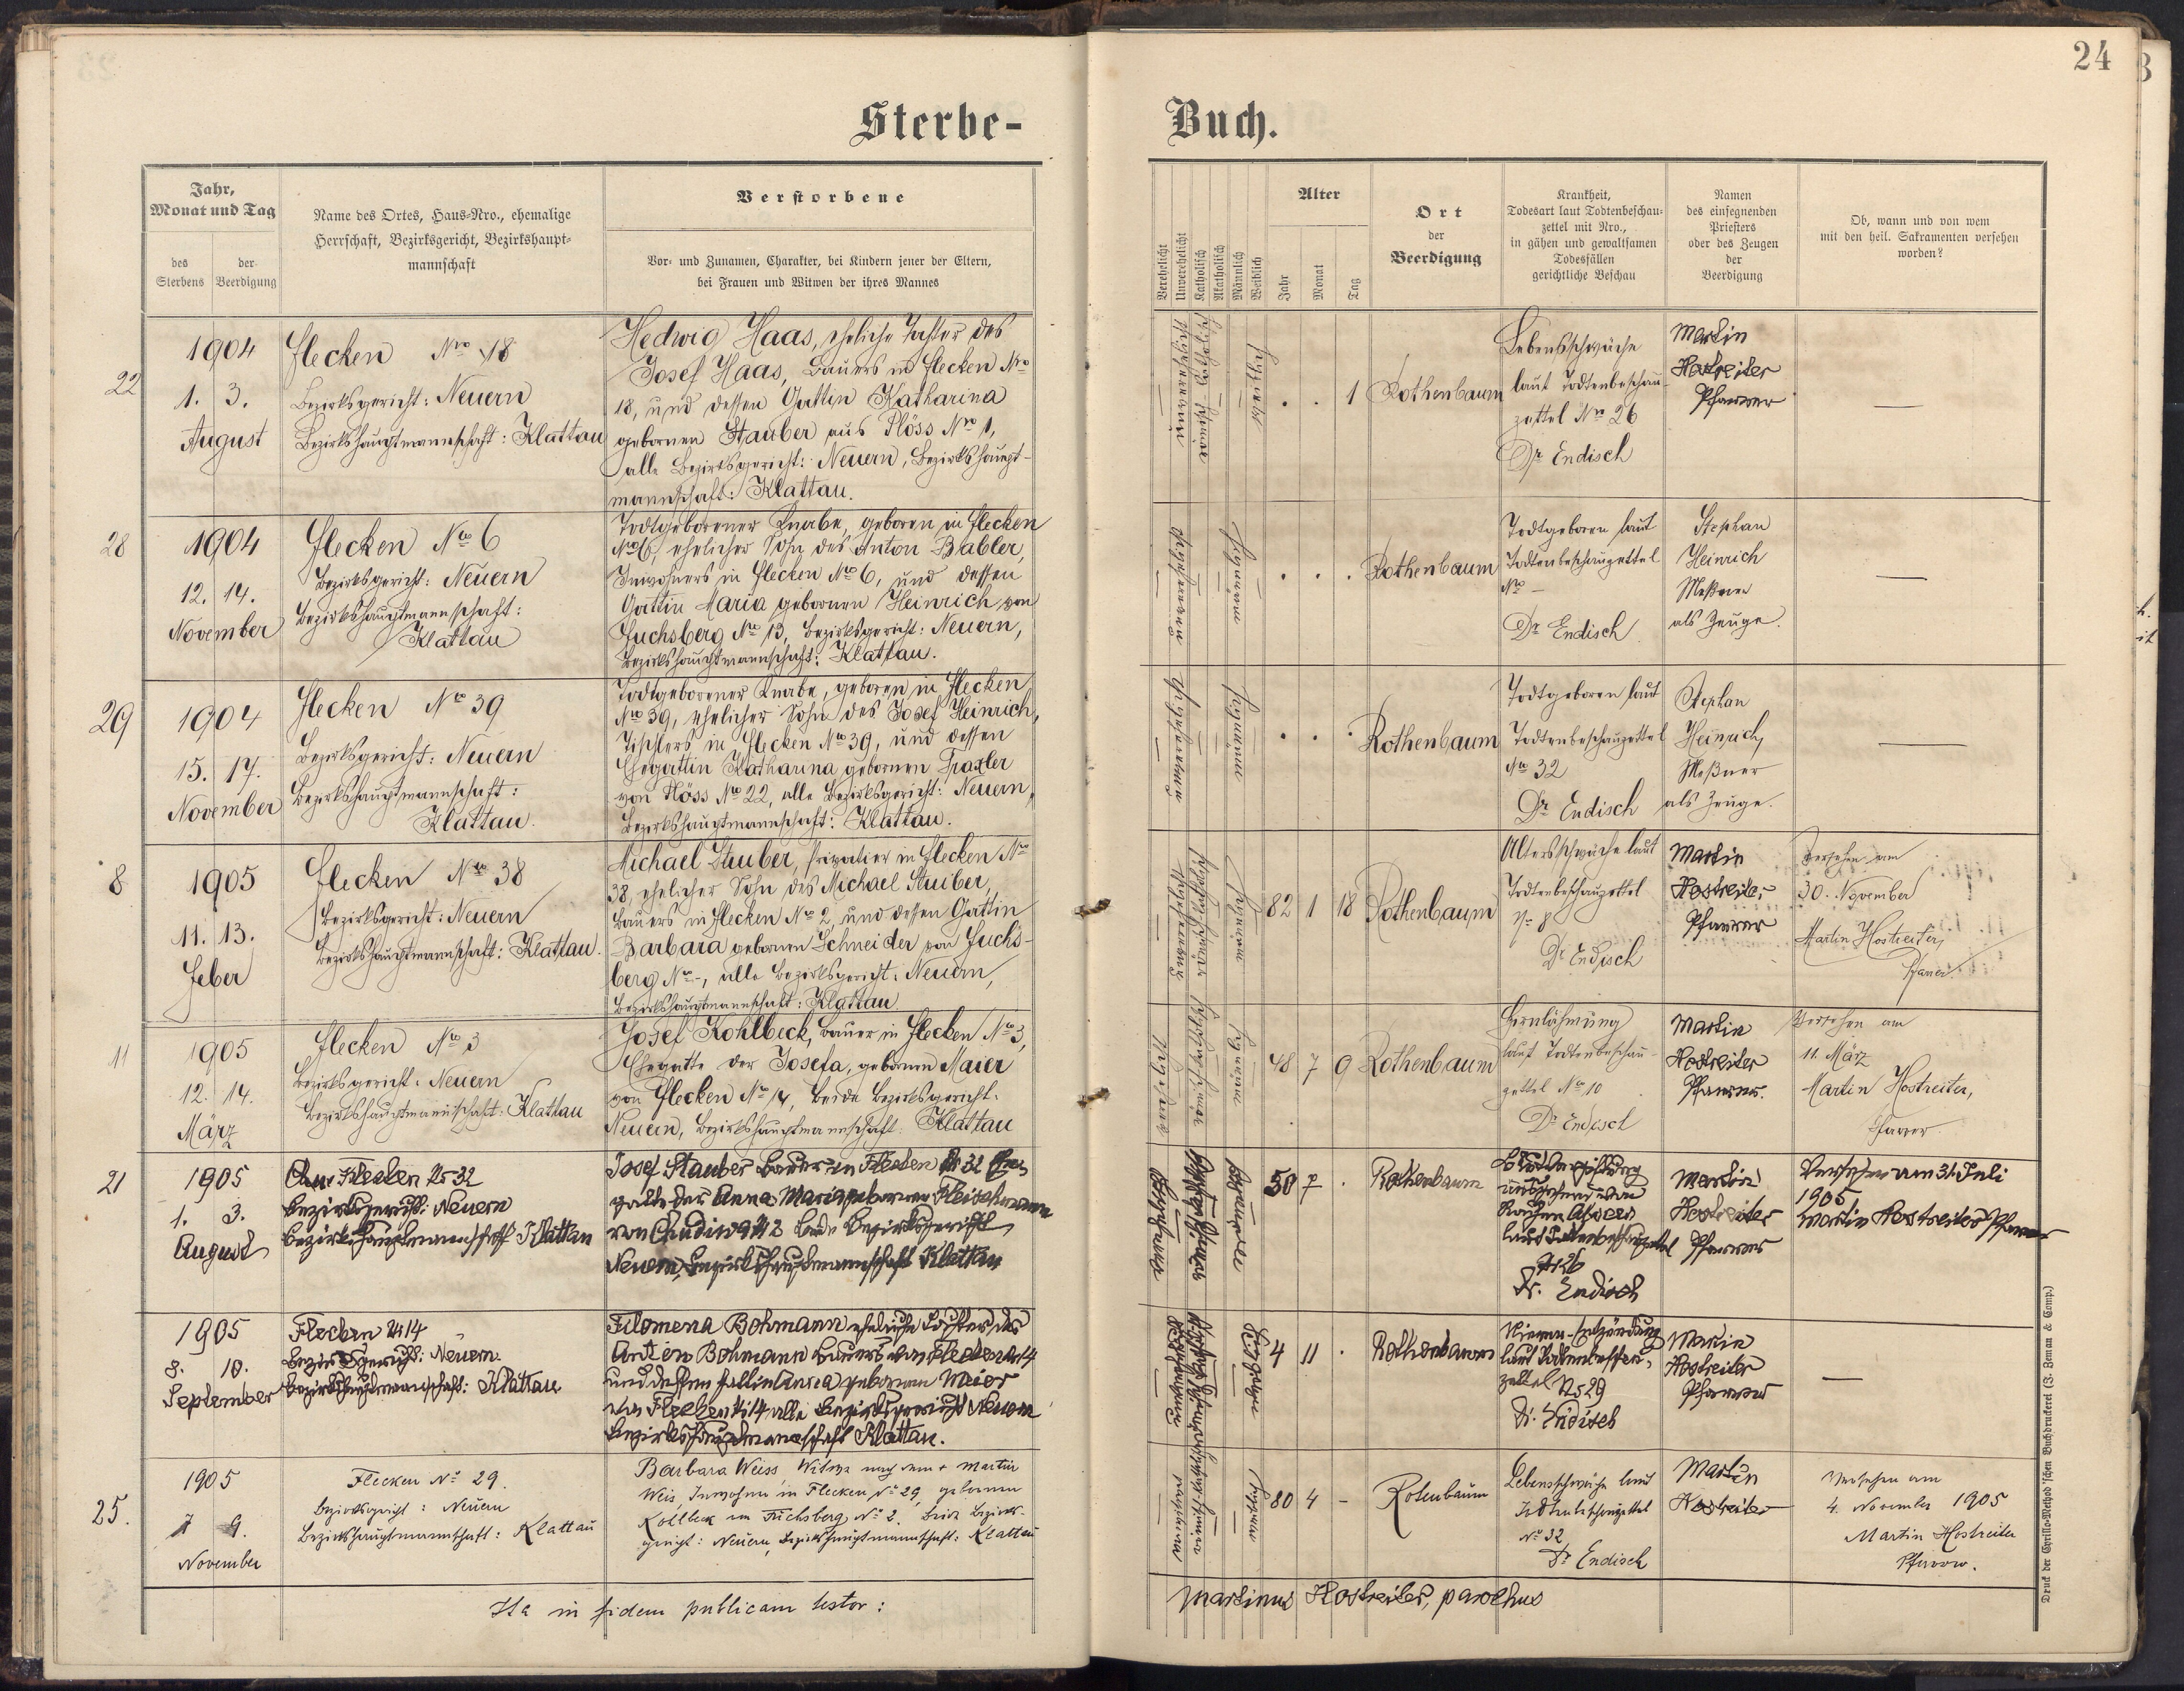 24
Sterbe-Buch.
Jahr, Monat und Tag
des Sterbens
der Beerdigung
Name des Ortes, Haus-Nro., ehemalige
Herrschaft, Bezirksgericht, Bezirkshaupt-
mannschaft
Verstorbene
Vor- und Zunamen, Charakter, bei Kindern jener der Eltern,
bei Frauen und Witwen der ihres Mannes
Verehelicht
Unverehelicht
Katholisch
Akatholisch
Männlich
Weiblich
Alter
Jahr
Monat
Tag
Ort
der
Beerdigung
Krankheit,
Todesart laut Todtenbeschau-
zettel mit Nro.,
in gähen und gewaltsamen
Todesfällen
gerichtliche Beschau
Namen
des einsegnenden
Priesters
oder des Zeugen
der
Beerdigung
Ob, wann und von wem
mit den heil. Sakramenten versehen
worden?
22
1904
1. 3.
August
Flecken Nro 18
Bezirksgericht: Neuern
Bezirkshauptmannschaft: Klattau
Hedwig Haas, eheliche Tochter des
Josef Haas, Bauers in Flecken Nro
18, und dessen Gattin Katharina
gebornen Stauber aus Plöss Nro 1,
alle Bezirksgericht: Neuern, Bezirkshaupt-
mannschaft: Klattau.
. . 1
Rothenbaum
Lebensschwäche
laut Todtenbeschau-
zettel Nro 26
Dr Endisch
Martin
Hostreiter
Pfarrer
—
28
1904
12. 14.
November
Flecken Nro 6
Bezirksgericht: Neuern
Bezirkshauptmannschaft:
Klattau
Todtgeborener Knabe, geboren in Flecken
Nro 6, ehelicher Sohn des Anton Babler,
Inwohners in Flecken Nro 6, und dessen
Gattin Maria gebornen Heinrich von
Fuchsberg Nro 13, Bezirksgericht: Neuern,
Bezirkshauptmannschaft: Klattau.
. . .
Rothenbaum
Todtgeboren laut
Todtenbeschauzettel
Nro —
Dr Endisch
Stephan
Heinrich
Meßner
als Zeuge.
—
29
1904
15. 17.
November
Flecken Nro 39
Bezirksgericht: Neuern
Bezirkshauptmannschaft:
Klattau.
Todtgeborener Knabe, geboren in Flecken
Nro 39, ehelicher Sohn des Josef Heinrich,
Tischlers in Flecken Nro 39, und dessen
Ehegattin Katharina gebornen Traxler
von Plöss Nro 22, alle Bezirksgericht: Neuern,
Bezirkshauptmannschaft: Klattau.
. . .
Rothenbaum
Todtgeboren laut
Todtenbeschauzettel
Nro 32
Dr Endisch
Stephan
Heinrich,
Meßner
als Zeuge.
—
8
1905
11. 13.
Feber
Flecken Nro 38
Bezirksgericht: Neuern
Bezirkshauptmannschaft: Klattau.
Michael Stuiber, Privatier in Flecken Nro
38, ehelicher Sohn des Michael Stuiber,
Bauers in Flecken Nro 2, und dessen Gattin
Barbara gebornen Schneider von Fuchs-
berg Nro -, alle Bezirksgericht: Neuern,
Bezirkshauptmannschaft: Klattau.
82 1 18
Rothenbaum
Altersschwäche laut
Todtenbeschauzettel
No 8
Dr Endisch
Martin
Hostreiter
Pfarrer
Versehen am
30. November
Martin Hostreiter,
Pfarrer.
11
1905
12. 14.
März
Flecken Nro 3
Bezirksgericht: Neuern
Bezirkshauptmannschaft: Klattau
Josef Kohlbeck, Bauer in Flecken Nro 3,
Ehegatte der Josefa, gebornen Maier
von Flecken Nro 14, beide Bezirksgericht:
Neuern, Bezirkshauptmannschaft: Klattau
48 7 9
Rothenbaum
Hirnlähmung
laut Todtenbeschau-
zettel Nro 10
Dr Endisch
Martin
Hostreiter
Pfarrer.
Versehen am
11. März
Martin Hostreiter,
Pfarrer.
21
1905
1. 3.
August
Flecken No 32
Bezirksgericht: Neuern
Bezirkshauptmannschaft Klattau
Josef Stauber Bauer in Flecken No 32 Ehe-
gatte der Anna Maria gebornen Fleischmann
von Chudiwa No 2 beide Bezirksgericht
Neuern, Bezirkshauptmannschaft Klattau
50 7 .
Rothenbaum
Blutvergiftung
laut Todtenbeschauzettel
No 26
Dr. Endisch
Martin
Hostreiter
Pfarrer
Versehen am 31. Juli
1905
Martin Hostreiter Pfarrer
1905
8. 10.
September
Flecken No 14
Bezirksgericht: Neuern.
Bezirkshauptmannschaft: Klattau
Filomena Bohmann eheliche Tochter des
Anton Bohmann Bauers von Flecken No 14
und dessen Gattin Anna gebornen Meier
von Flecken No 14 alle Bezirksgericht Neuern
Bezirkshauptmannschaft Klattau.
4 11 .
Rothenbaum
Nieren-Entzündung
laut Todtenbeschau-
zettel No 29
Dr. Endisch
Martin
Hostreiter
Pfarrer
—
25.
1905
7 9.
November
Flecken No 29.
Bezirksgericht: Neuern
Bezirkshauptmannschaft: Klattau
Barbara Weiss, Witwe nach dem + Martin
Weis, Inwohner in Flecken No 29, gebornen
Kollbeck von Fuchsberg No 2. beide Bezirks-
gericht: Neuern, Bezirkshauptmannschaft: Klattau
80 4 –
Rotenbaum
Lebensschwäche laut
Todtenbeschauzettel
No 32
Dr Endisch
Martin
Hostreiter
Versehen am
4. November 1905
Martin Hostreiter
Pfarrer.
Ita in fidem publicam testor:
Martinus Hostreiter, parochus
Druck der Cyrillo-Method'schen Buchdruckerei (J. Zeman & Comp.)